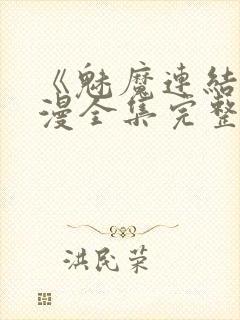 《魅魔連結
漫全集完整
洪民荣